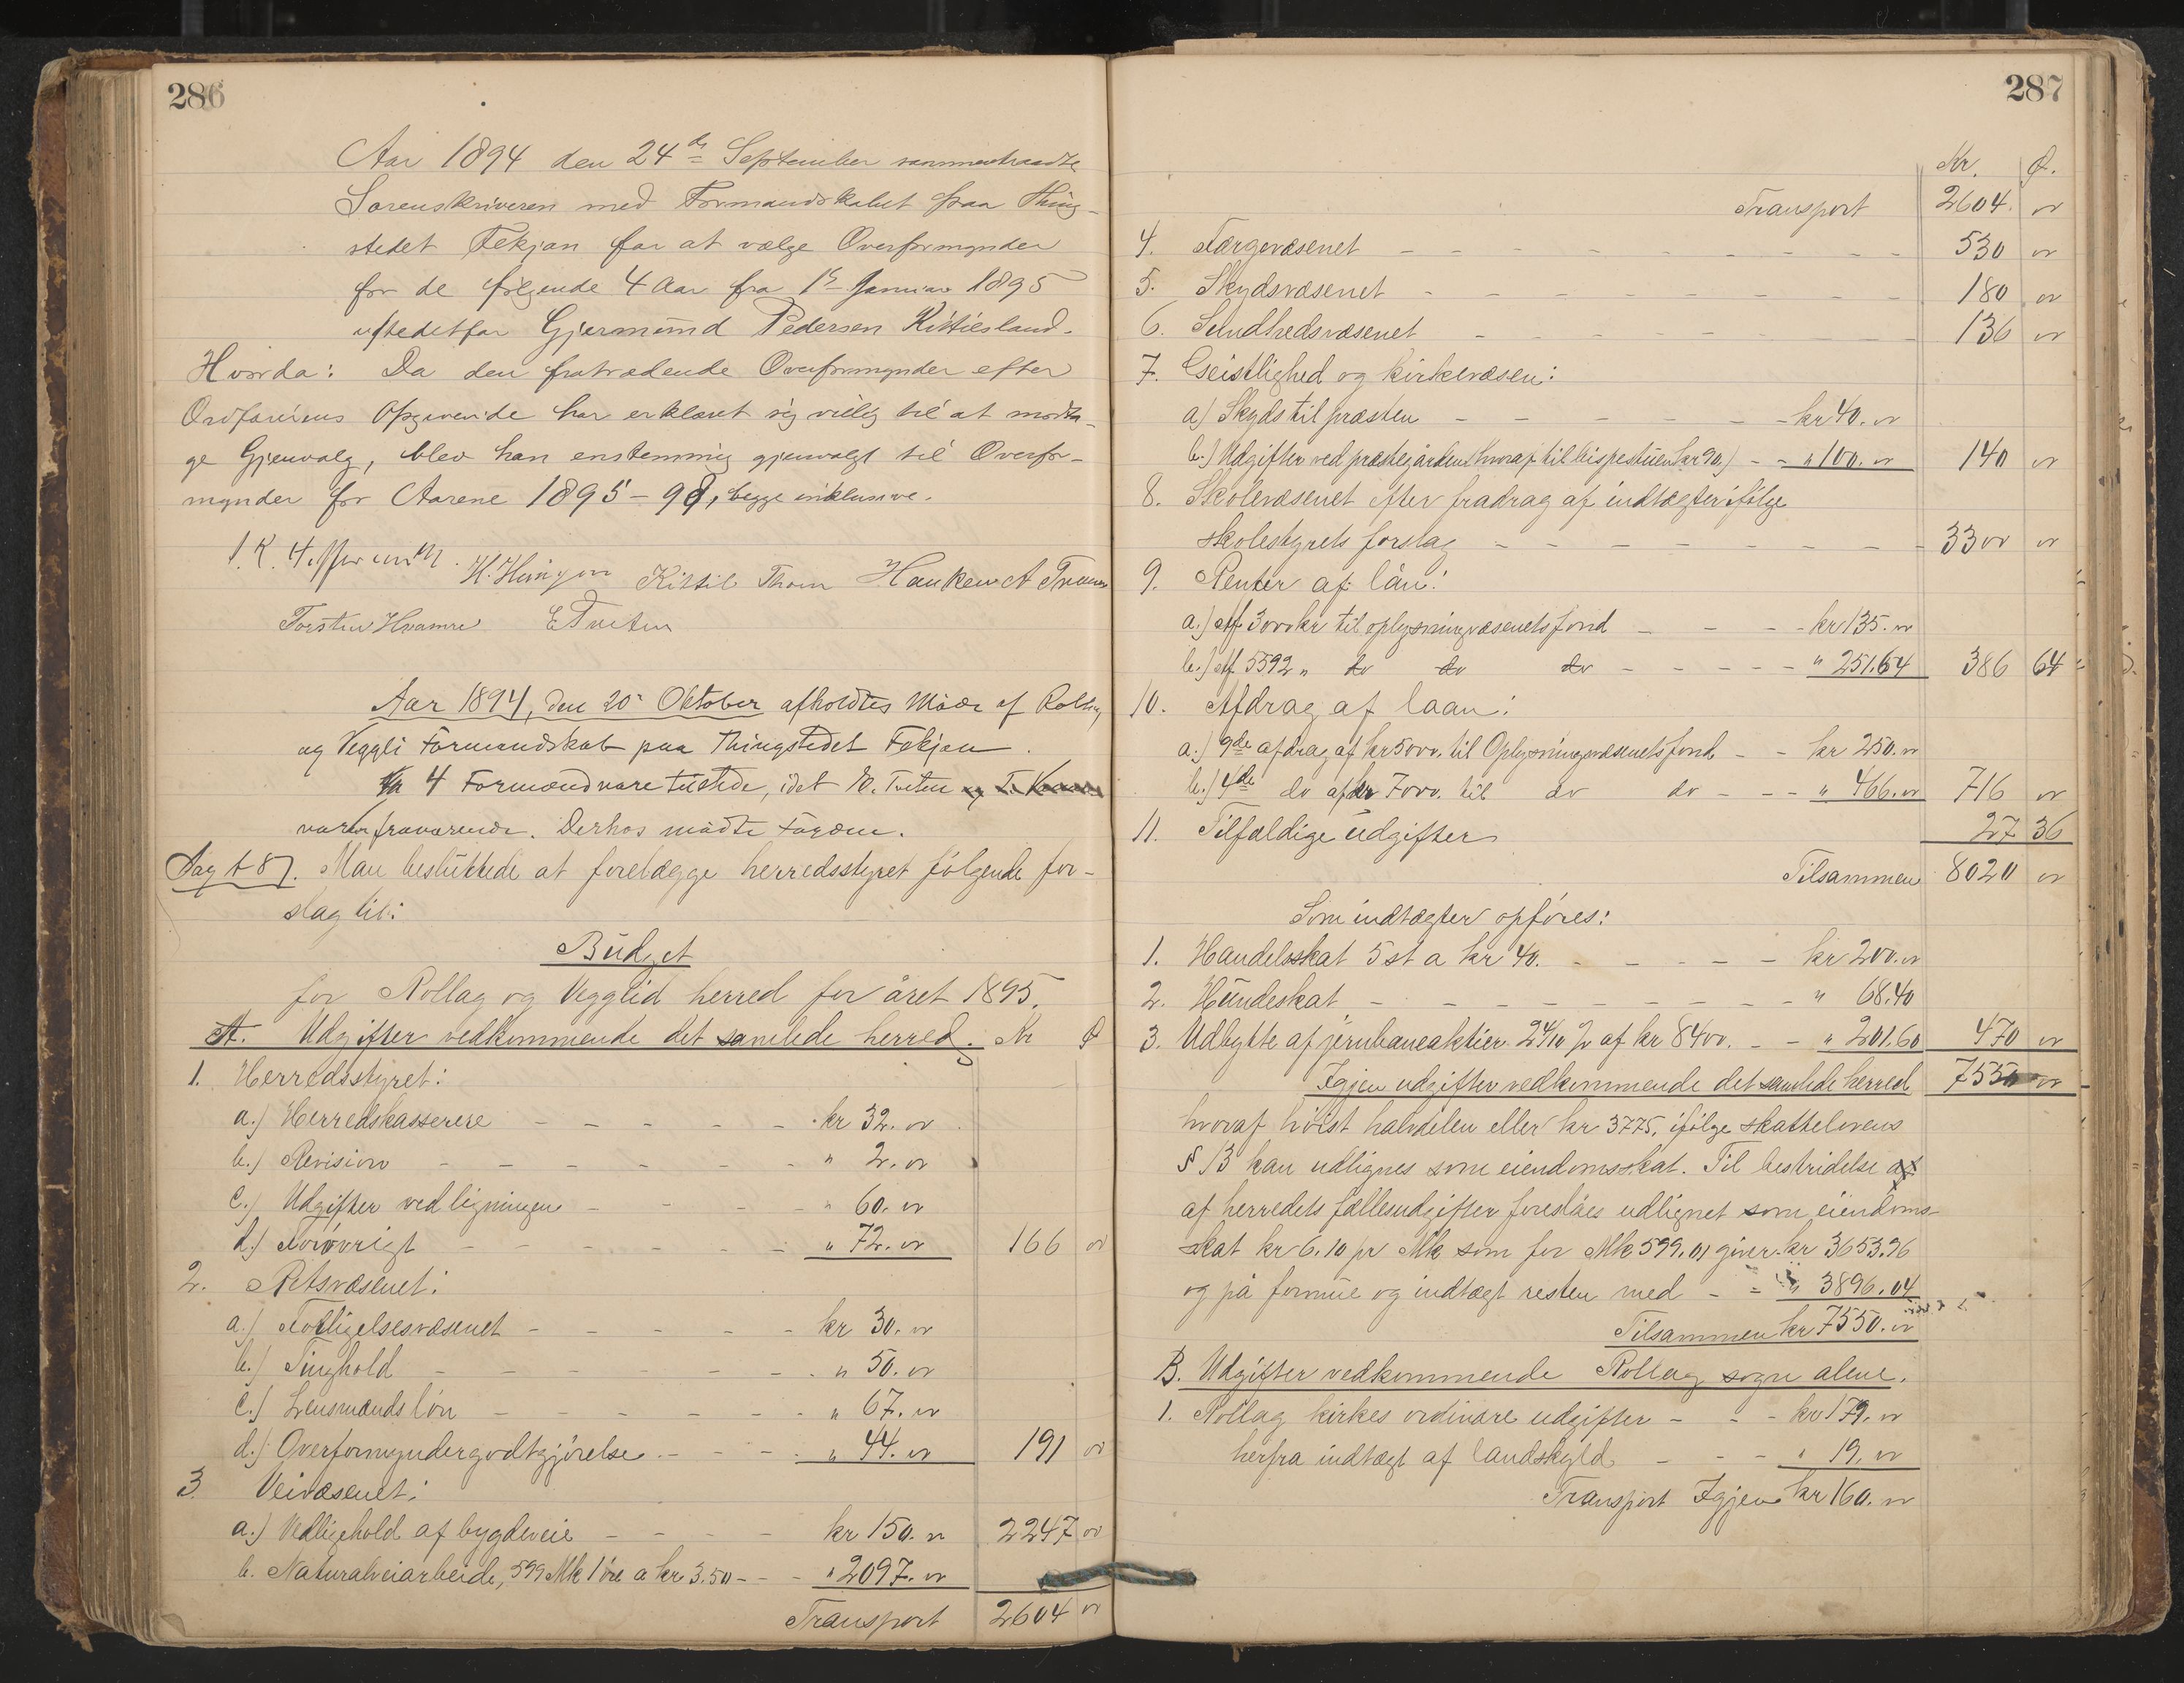 286
Aar 1894 den 24de September sammentraadte
Sorenskriveren med Formandskabet paa Thing-
stedet Fekjan for at vælge Overformynder
for de følgende 4 Aar fra 1ste Januar 1895
istedetfor Gjermund Pedersen Kittilsland.
Hvorda: Da den fratrædende Overformynder efter
Ordførerens Opgivende har erklæret sig villig til at modta-
ge Gjenvalg, blev han enstemmig gjenvalgt til Overfor-
mynder for Aarene 1895-98, begge inklusive.
H. Kittil Haaken A
Torsten Hvamre E Tveten
Aar 1894, den 20de Oktober afholdtes Møde af Rollag
og Veggli Formandskab paa Thingstedet Fekjan.
4 Formænd vare tilstede, idet E. Tveten og T.
var fraværende. Derhos mødte
Sag 187. Man besluttede at forelægge herredsstyret følgende for-
slag til:
Budget
for Rollag og Vegglid herred for året 1895.
A. Udgifter vedkommende det samlede herred. Kr Ø
1. Herredsstyret:
a.) Herredskasserere - - - - - kr 32. oo
b.) Revision - - - - - - " 2. oo
c.) Udgifter ved ligningen - - - - " 60. oo
d.) Forøvrigt - - - - - - " 72. oo 166 oo
2. Retsvæsenet:
a.) Forligelsesvæsenet - - - - - kr 30. oo
b.) Tinghold - - - - - - - " 50. oo
c.) Lensmandsløn - - - - - - " 67. oo
d.) Overformyndergodtgjørelse - - - " 44. oo 191 oo
3 Veivæsenet:
a.) Vedligehold af bygdeveie - - - - kr 150. oo 2247 oo
b. Naturalveiarbeide, 599 Mk 1 øre a kr 3.50 - - - " 2097. oo
Transport 2604 oo
287
Kr. Ø.
Transport 2604. oo
4. Færgevæsenet - - - - - - - - 530 oo
5. Skydsvæsenet - - - - - - - - 180 oo
6. Sundhedsvæsenet - - - - - - - 136 oo
7. Geistlighed og kirkevæsen:
a) Skyds til præsten - - - - - - kr 40. oo
b.) Udgifter ved præstegården (hvoraf til bispestuen kr 90.) - - " 100. oo 140 oo
8. Skolevæsenet efter fradrag af indtægter ifølge
skolestyrets forslag - - - - - - - - 3300 oo
9. Renter af lån:
a.) Af 3000 kr til oplysningvæsenets fond - - - - kr 135. oo
b.) Af 5592 " do do do - - - - - " 251.64 386 64
10. Afdrag af laan:
a.) 9de afdrag af kr 5000. til Oplysningvæsenets fond - - kr 250. oo
b.) 4de do af kr 7000. til do do - - - " 466. oo 716 oo
11. Tilfældige udgifter 27 36
Tilsammen 8020 oo
Som indtægter opføres:
1. Handelsskat 5 st a kr 40. - - - - - kr 200. oo
2. Hundeskat - - - - - - - - - " 68.40
3. Udbytte af jernbaneaktier 2 4/10 % af kr 8400. - - " 201.60 470 oo
Igjen udgifter vedkommende det samlede herred 7550 oo
hvoraf høist halvdelen eller kr 3775, ifølge skattelovens
§ 13 kan udlignes som eiendomsskat. Til bestridelse af
af herredets fællesudgifter foreslåes udlignet som eiendoms-
skat kr 6.10 pr Mk som for Mk 599,01 giver kr 3653.96
og på formue og indtægt resten med - - " 3896.04
Tilsammen kr 7550. oo
B. Udgifter vedkommende Rollag sogn alene.
1. Rollag kirkes ordinære udgifter - - - kr 179. oo
herfra indtægt af landskyld - - - " 19. oo
Transport Igjen kr 160. oo